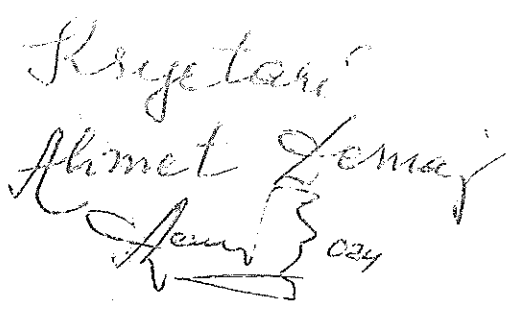 Kryetari
Ahmet Demaj